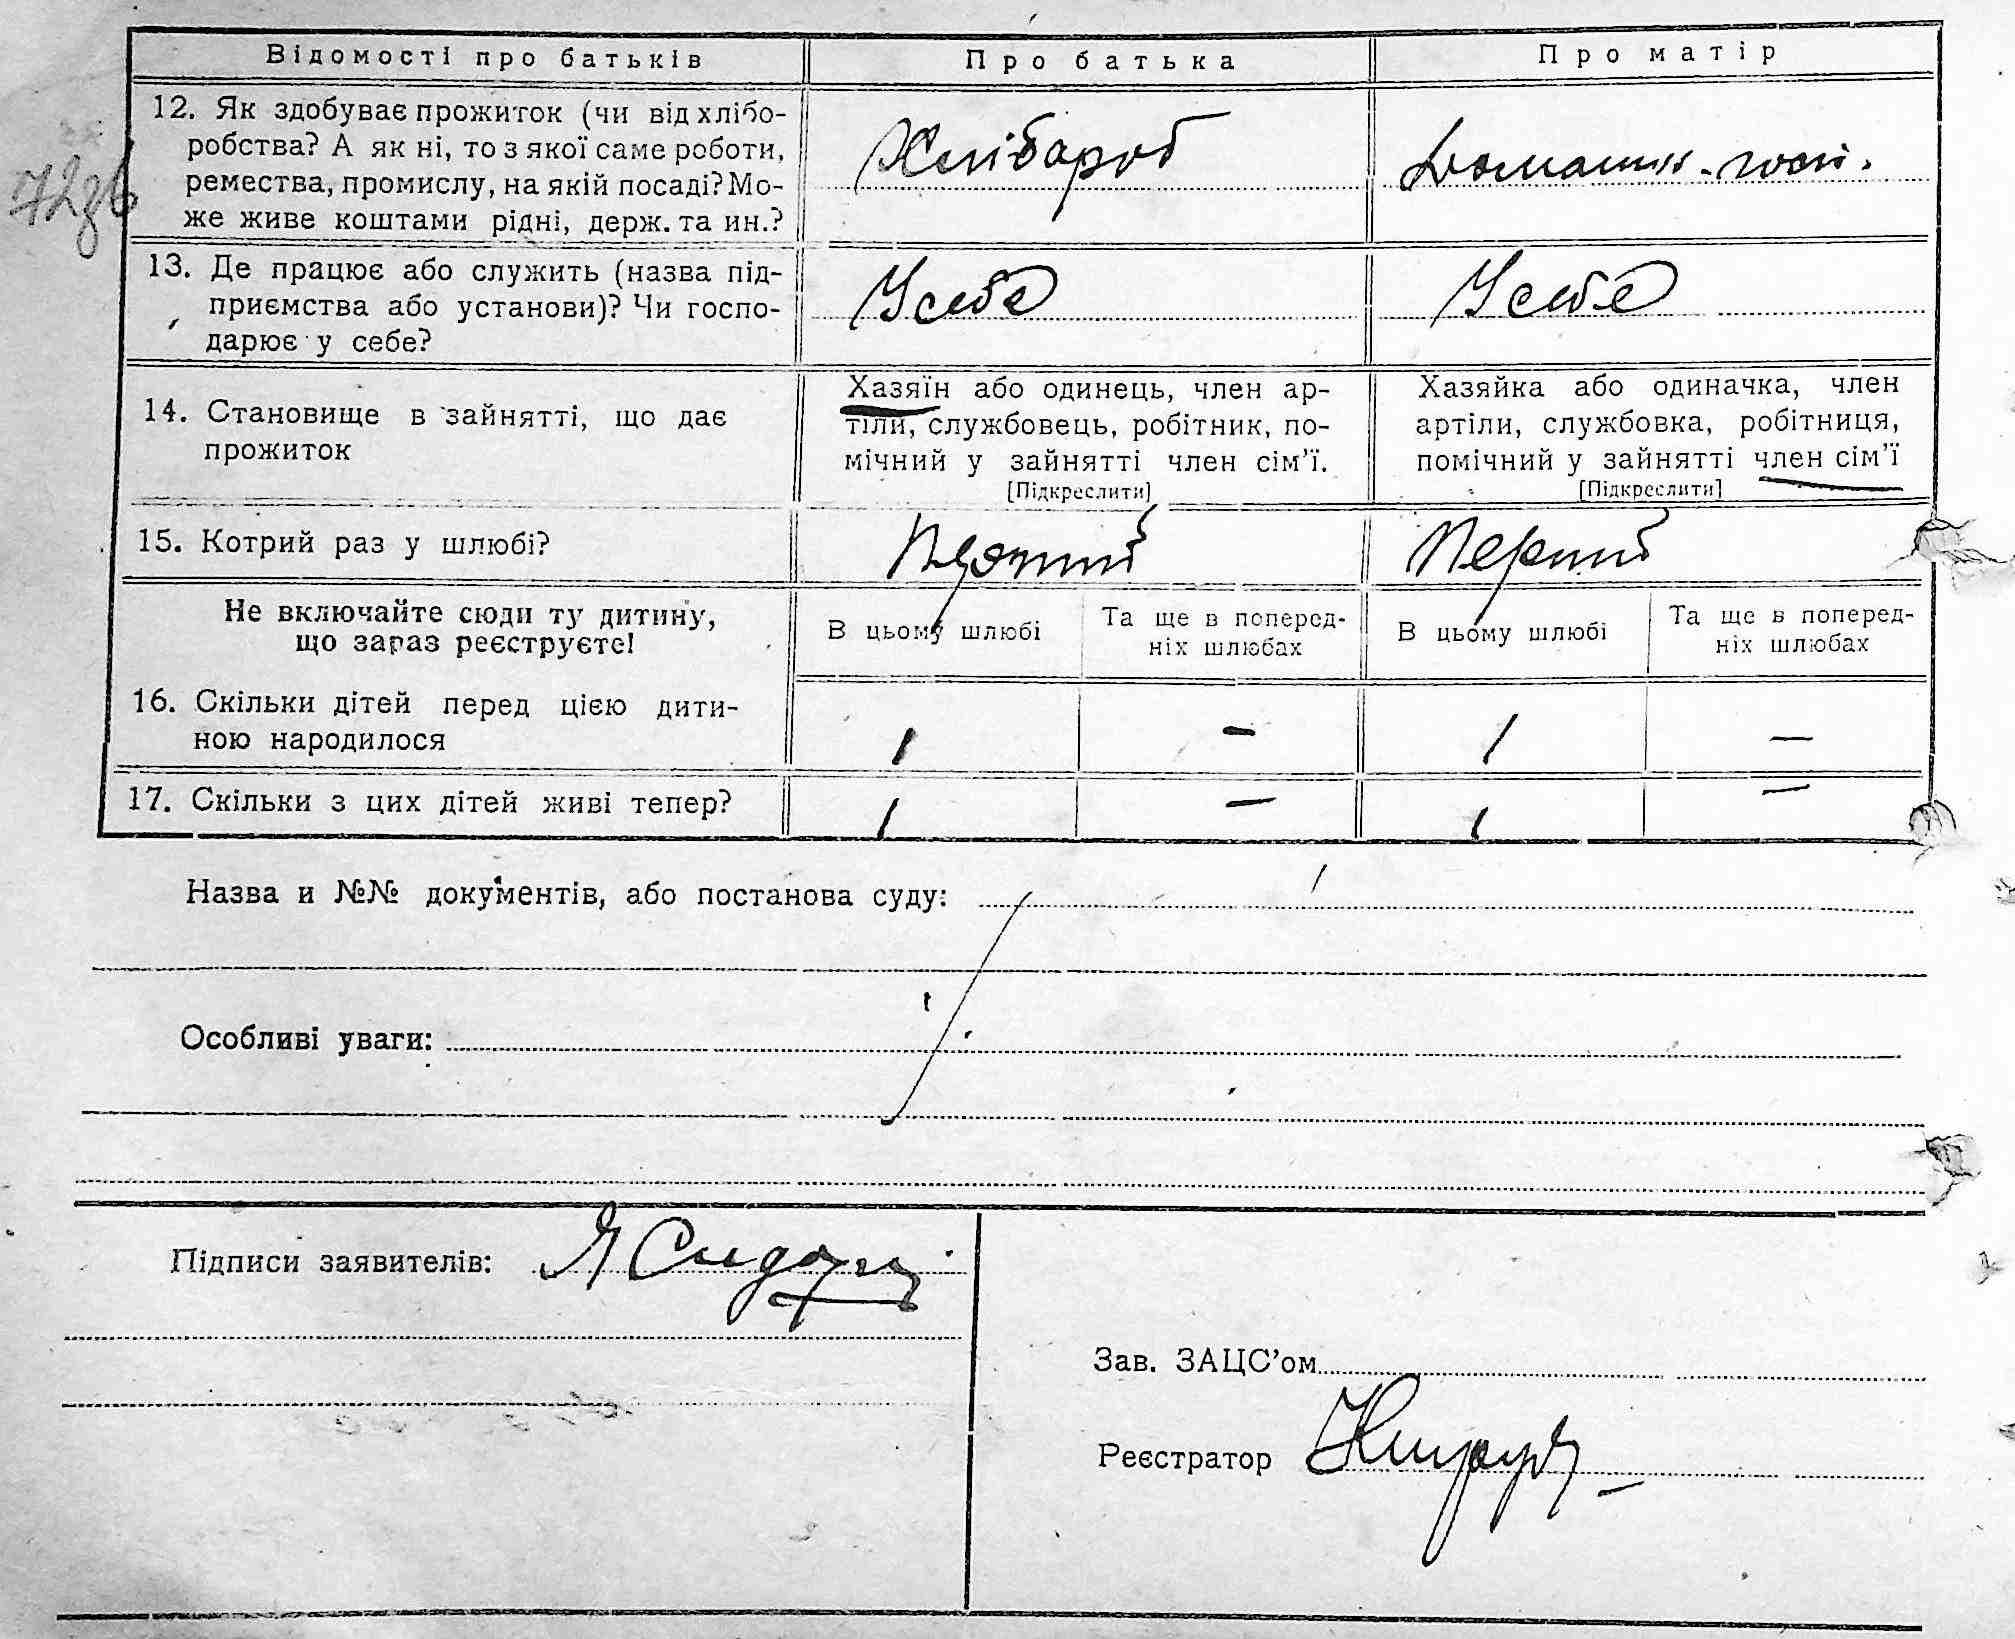 Відомості про батьків
Про батька
Про матір
12. Як здобуває прожиток (чи від хлібо-
робства? А як ні, то з якої саме роботи,
ремества, промислу, на якій посаді? Мо-
же живе коштами рідні, держ. та ин.?
Хлібароб
Домашн. госп.
13. Де працює або служить (назва під-
приємства або установи)? Чи госпо-
дарює у себе?
У себе
У себе
14. Становище в зайнятті, що дає
прожиток
Хазяїн або одинець, член ар-
тіли, службовець, робітник, по-
мічний у зайнятті член сім'ї.
[Підкреслити]
Хазяйка або одиначка, член
артіли, службовка, робітниця,
помічний у зайнятті член сім'ї
[Підкреслити]
15. Котрий раз у шлюбі?
Перший
Не включайте сюди ту дитину,
що зараз реєструєте!
В цьому шлюбі
Та ще в поперед-
ніх шлюбах
В цьому шлюбі
Та ще в поперед-
ніх шлюбах
16. Скільки дітей перед цією дити-
ною народилося
1 – 1 –
17. Скільки з цих дітей живі тепер?
1 – 1 –
Назва и №№ документів, або постанова суду:
Особливі уваги:
Підписи заявителів:
Зав. ЗАЦС'ом
Реєстратор